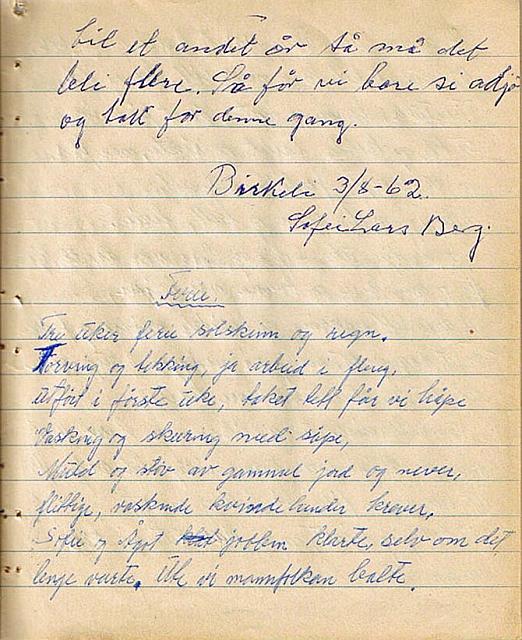 til et andet år så må det
bli flere. Så får vi bare si adjø
og takk for denne gang.
Birkeli 3/8-62.
Sofie Lars Berg.
Ferie.
Tre uker ferie solskinn og regn.
Torving og tekking, ja arbeid i fleng.
utført i første uke, taket tett får vi håpe
Vasking og skuring med såpe,
Muld og støv av gammal jord og never,
flittige, vaskende kvinnehender krever.
Sofie og Ågot jobben klarte, selv om det
lenge varte. Ute vi mannfolkan